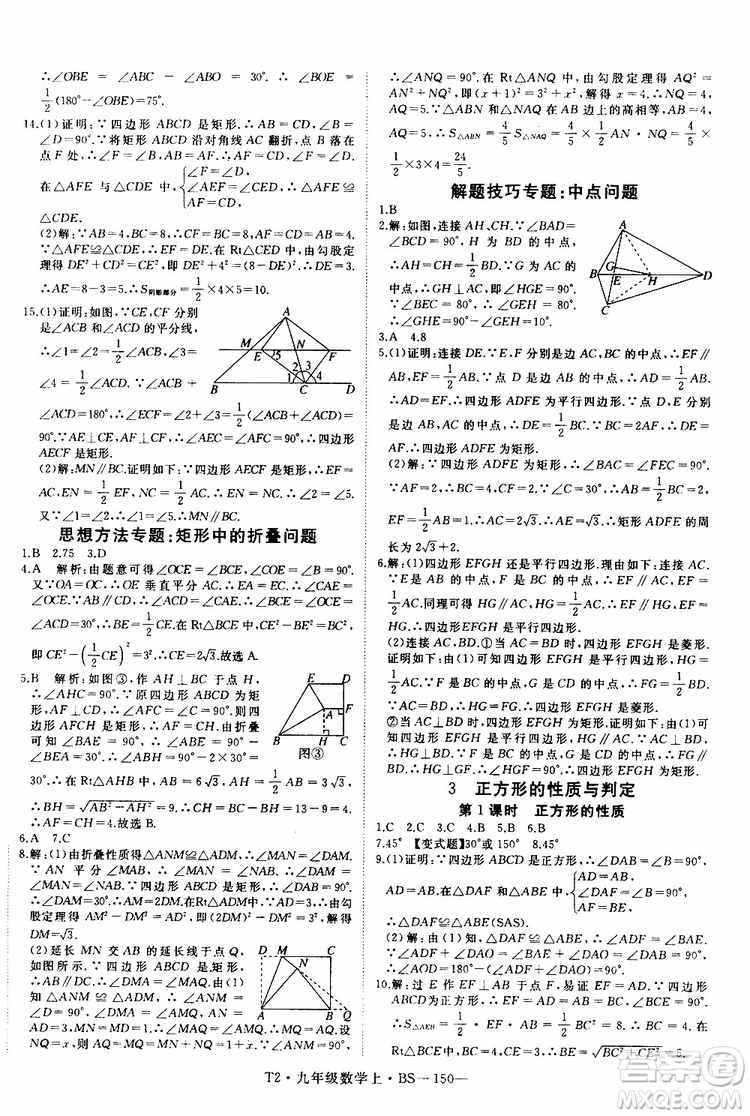 ∴∠OBE = ∠ABC − ∠ABO = 30°. ∴∠BOE =
1/2(180°−∠OBE)=75°.
14.(1)证明:∵四边形 ABCD 是矩形,∴AB=CD,∠B=
∠D=90°.∵将矩形 ABCD 沿对角线 AC 翻折,点 B 落在
点 E 处,∴∠E=∠B,AB=AE,∴AE=CD,∠E=∠D.
在△AFE 与△CDE 中,{∠F=∠D,∠AEF=∠CED,∴△AFE≌
△CDE.
(2)解:∵AB=4,BC=8,∴CF=AD=8,AF=CD=AB=4.
∵△AFE≌△CDE,∴EF=DE.在Rt△CED中,由勾股定
理得 DE²+CD²=CE²,即 DE²+4²=(8−DE)²,∴DE=3,
∴AE=8−3=5,∴S阴影部分=1/2×4×5=10.
15.(1)证明:如图,∵CE,CF 分别
是∠BCA 和∠ACD 的平分线,
∴∠1=∠2=1/2∠ACB,∠3=
∠4=1/2∠ACD.∵∠BCA+
∠ACD=180°,∴∠ECF=∠2+∠3=1/2(∠BCA+∠ACD)=
90°.∵AE⊥CE,AF⊥CF,∴∠AEC=∠AFC=90°,∴四边形
AECF 是矩形.
(2)解:MN∥BC.证明如下:∵四边形 AECF 是矩形,∴NC=
1/2AC,EN=1/2EF,AC=EF,∴NE=NC,∴∠2=∠5.
又∵∠1=∠2,∴∠1=∠5,∴MN∥BC.
思想方法专题:矩形中的折叠问题
1.B 2.75 3.D
4.A 解析:由题意可得∠OCE=∠BCE,∠COE=∠B=90°.
又∵OA=OC,∴OE 垂直平分 AC,∴EA=EC,∴∠OCE=
∠EAC=30°,∴BE=1/2CE.在Rt△BCE中,CE²−BE²=BC²,
即 CE²−(1/2CE)²=3²,∴CE=2√3.故选 A.
5.B 解析:如图③,作 AH⊥BC 于点 H,
∴∠AHC=90°.∵原四边形 ABCD 为矩
形,∴∠AFC=∠C=90°,则四边形
AFCH 是矩形,∴CH=AF=4.由折叠
可知∠BEA=90°.∵∠BAE=60°,∴∠ABE=
30°.在Rt△AHB中,AB=6√3,AH=CF=CD−DF=6,
∴BH=√(AB²−AH²)=9,∴CH=BC−BH=13−9=4.故选 B.
6.A 7.C
8.解:(1)由折叠性质得△ANM≌△ADM,∴∠MAN=∠DAM.
∵AN 平分∠MAB,∴∠MAN=∠NAB,∴∠DAM=
∠MAN=∠NAB.∵四边形 ABCD 是矩形,∴∠DAB=90°,
∴∠DAM=30°,∴AM=2DM.在Rt△ADM中,AD=3,由勾
股定理得 AM²−DM²=AD²,即(2DM)²−DM²=3²,解得
DM=√3.
(2)延长 MN 交 AB 的延长线于点 Q,
如图所示.∵四边形 ABCD 是矩形,
∴AB∥DC,∴∠DMA=∠MAQ.由折叠
性质得△ANM≌△ADM,∴∠ANM=
∠D=90°,∠DMA=∠AMQ,AN=AD=3,MN=MD=1,
∴∠MAQ=∠AMQ,∴MQ=AQ.设 NQ=x,则 AQ=MQ=
1+x.∵∠ANM=90°,
∴∠ANQ=90°.在Rt△ANQ中,由勾股定理得 AQ²=
AN²+NQ²,即(x+1)²=3²+x²,解得 x=4,∴NQ=4,
AQ=5.∵AB=4,∴S△ANB=4/5S△NAQ=4/5×1/2AN·NQ=4/5×
1/2×3×4=24/5.
解题技巧专题:中点问题
1.B
2.解:如图,连接 AH,CH.∵∠BAD=
∠BCD=90°,H 为 BD 的中点,
∴AH=CH=1/2BD.∵G 为 AC 的中
点,∴GH⊥AC,即∠HGE=90°.
∵∠BEC=80°,∴∠GEH=80°,
∴∠GHE=90°−∠GEH=10°.
3.A 4.8
5.(1)证明:连接 DE.∵E,F 分别是边 AC,BC 的中点,∴EF∥
AB,EF=1/2AB.∵点 D 是边 AB 的中点,∴AD=1/2AB,
∴AD=EF,∴四边形 ADFE 为平行四边形.∵点 D,E分别是
边 AB,AC 的中点,∴DE=1/2BC.∵BC=2AF,∴DE=AF,
∴四边形 ADFE 为矩形.
(2)解:∵四边形 ADFE 为矩形,∴∠BAC=∠FEC=90°.
∵AF=2,F为BC中点,∴BC=4,CF=2.∵∠C=30°,∴AB=2,
EF=1.∴AC=√(BC²−AB²)=2√3,∴AE=√3,∴矩形 ADFE 的周
长为2√3+2.
6.解:(1)四边形 EFGH 是平行四边形.理由如下:连接 AC.
∵E 是 AB 的中点,F 是 BC 的中点,∴EF∥AC,EF=
1/2AC.同理可得 HG∥AC,HG=1/2AC,∴EF∥HG,EF=
HG,∴四边形 EFGH 是平行四边形.
(2)连接 AC,BD.①当 AC=BD 时,四边形 EFGH 是菱形.
证明如下:由(1)可知四边形 EFGH 是平行四边形,
∵AC=BD,∴FG=1/2BD=1/2AC=EF,∴四边形 EFGH 是菱形.
②当 AC⊥BD 时,四边形 EFGH 为矩形.理由如下:由(1)可
知四边形 EFGH 是平行四边形.∵AC⊥BD,GH∥AC,
∴GH⊥BD.∵GF∥BD,∴GH⊥GF,∴四边形 EFGH 为矩形.
3 正方形的性质与判定
第1课时 正方形的性质
1.C 2.C 3.C 4.B 5.B 6.A
7.45° 【变式题】30°或150° 8.45°
9.(1)证明:∵四边形 ABCD 是正方形,∴∠DAB=∠ABC=
90°,AD=AB.在△DAF 和△ABE 中,{AD=AB,∠DAF=∠ABE,AF=BE,
∴△DAF≌△ABE(SAS).
(2)解:由(1)知,△DAF≌△ABE,∴∠ADF=∠BAE.
∵∠ADF+∠DAO=∠BAE+∠DAO=∠DAB=90°,
∴∠AOD=180°−(∠ADF+∠DAO)=90°.
10.解:过 E 作 EF⊥AB 于点 F,易证 EF=AD.∵四边形
ABCD为正方形,∴AD=AB=BC=CD,∠C=90°,∴EF=
AB.∴S△AEB=1/2AB·EF=1/2AB²=8,∴AB=4,∴BC=4.
在Rt△BCE中,CE=3,∴BE=√(BC²+CE²)=5.
图③
T2·九年级数学上·BS—150—